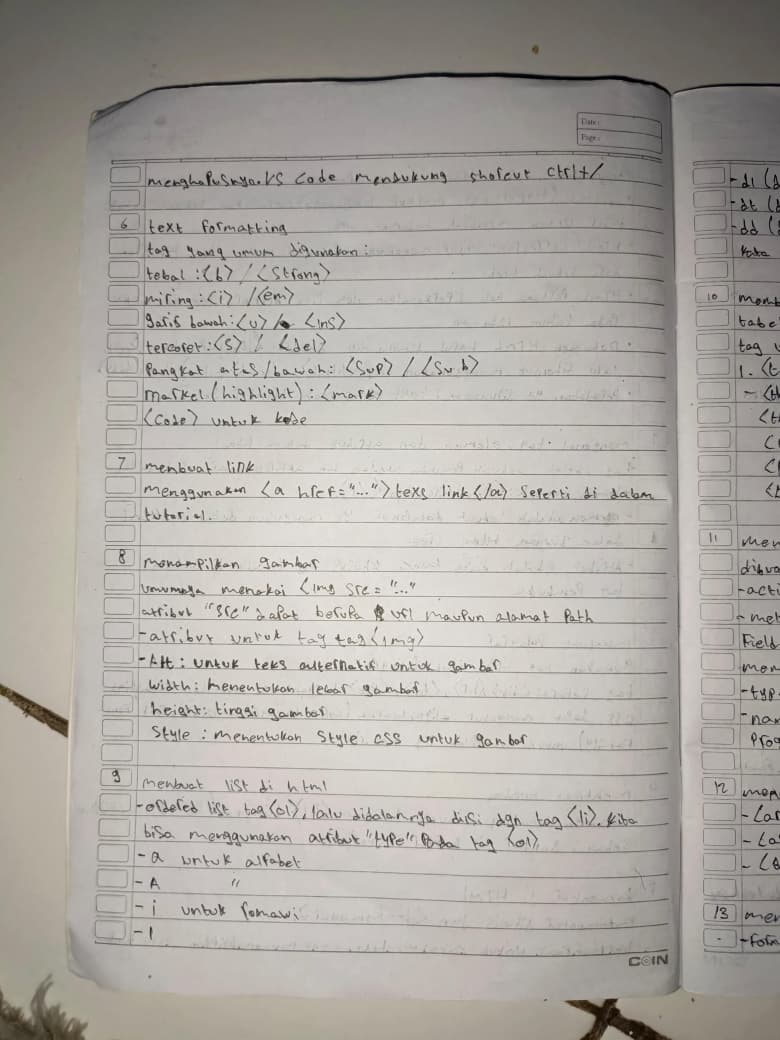 Date:
Page:
menghapusnya. VS Code mendukung shorcut ctrl+/
6 text formatting
tag yang umum digunakan:
tebal : <b> / <Strong>
miring : <i> / <em>
garis bawah : <u> / <ins>
tercoret : <s> / <del>
Pangkat atas/bawah : <Sup> / <Sub>
markel (highlight) : <mark>
<Code> untuk kode
7 membuat link
menggunakan <a href="..."> texs link </a> seperti di dalam
tutorial.
8 menampilkan gambar
umumnya memakai <img src = "..."
atribut "src" dapat berupa url maupun alamat Path
- atribut untuk tag tag <img>
- Alt : untuk teks alternatif untuk gambar
width : menentukan lebar gambar
height : tinggi gambar
Style : menentukan Style CSS untuk gambar
9 membuat list di html
- ordered list, tag <ol>, lalu didalamnya diisi dgn tag <li>. kita
bisa menggunakan atribut "type" Pada tag <ol>
- a untuk alfabet
- A "
- i untuk romawi
- I
COIN
- dl (d
- dt (d
- dd (
kata
10 memb
tabe
tag
1. <t
- <th
<t
<
<
<t
11 men
dibua
- acti
- met
Field
mem
- typ
- nam
Prog
12 mem
- <a
- <a
- <
13 mem
- form